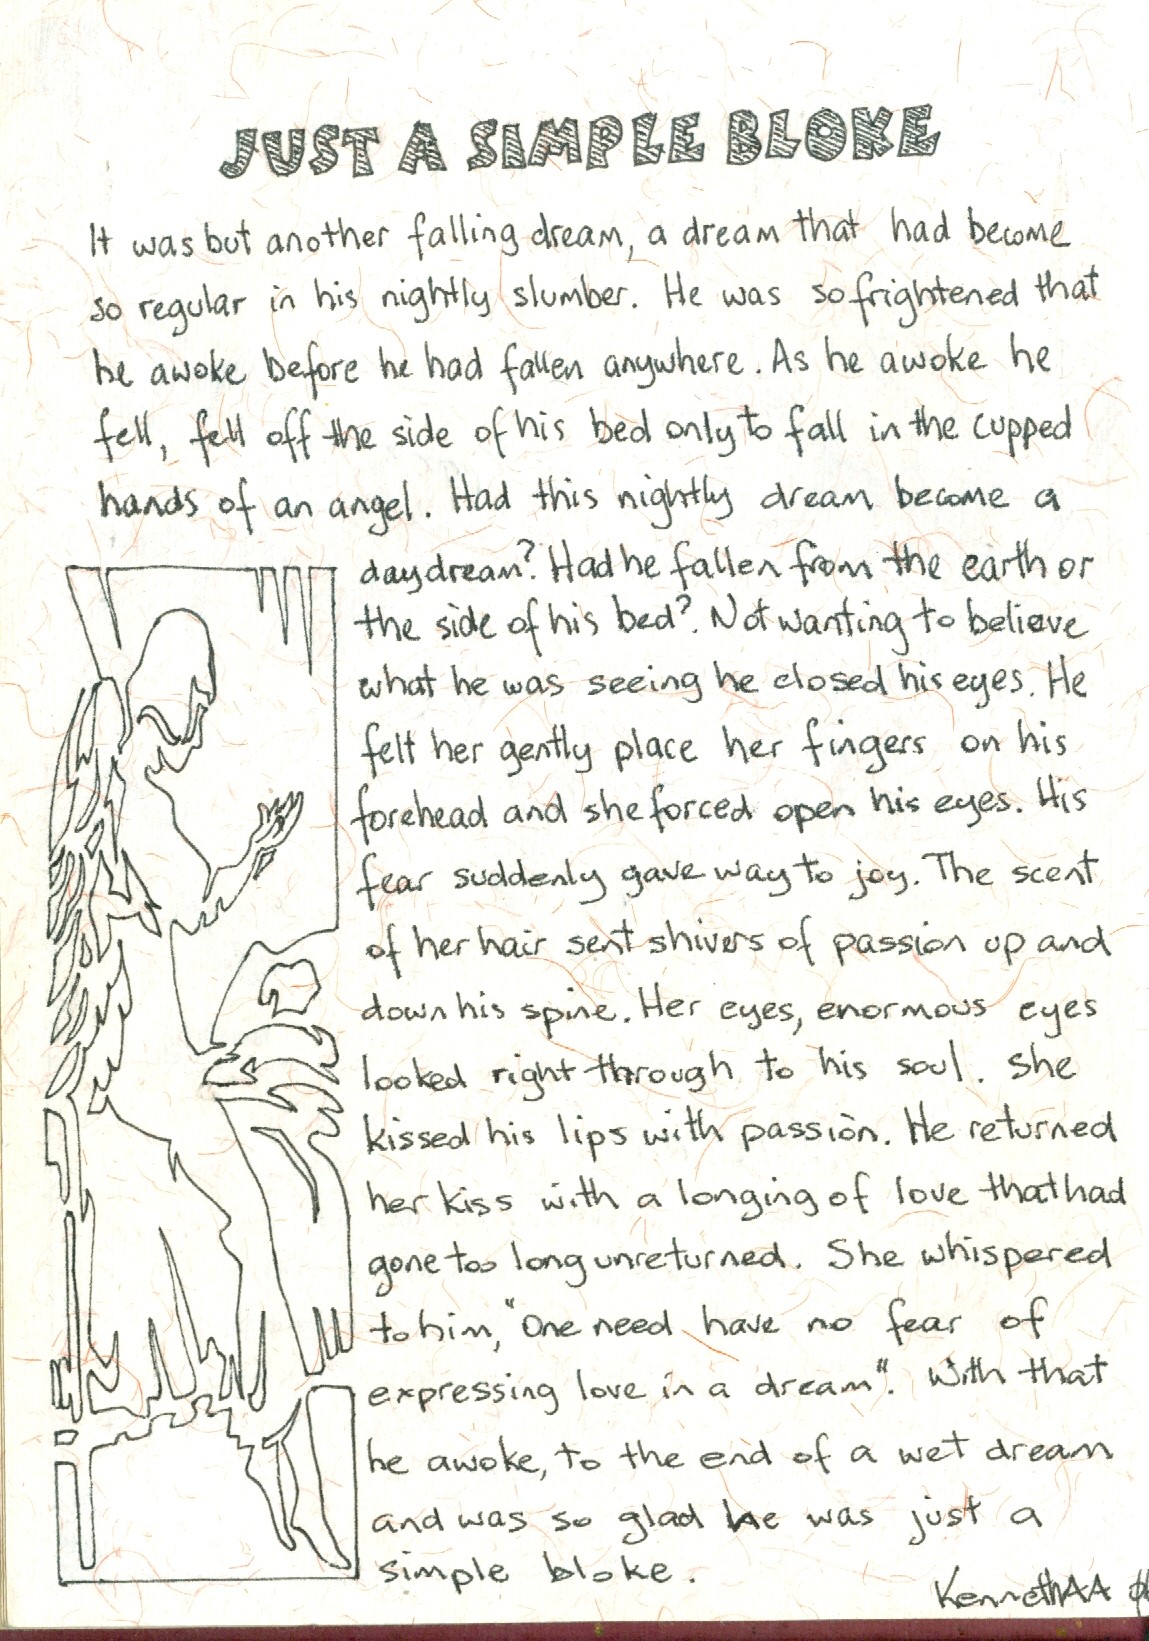 JUST A SIMPLE BLOKE
It was but another falling dream, a dream that had become
so regular in his nightly slumber. He was so frightened that
he awoke before he had fallen anywhere. As he awoke he
fell, fell off the side of his bed only to fall in the cupped
hands of an angel. Had this nightly dream become a
daydream? Had he fallen from the earth or
the side of his bed? Not wanting to believe
what he was seeing he closed his eyes. He
felt her gently place her fingers on his
forehead and she forced open his eyes. His
fear suddenly gave way to joy. The scent
of her hair sent shivers of passion up and
down his spine. Her eyes, enormous eyes
looked right through to his soul. She
kissed his lips with passion. He returned
her kiss with a longing of love that had
gone too long unreturned. She whispered
to him, "One need have no fear of
expressing love in a dream". With that
he awoke, to the end of a wet dream
and was so glad he was just a
simple bloke.
KennethAA